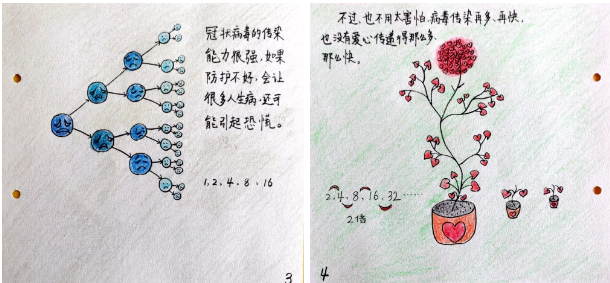 冠状病毒的传染
能力很强,如果
防护不好,会让
很多人生病,还可
能引起恐慌。
1,2,4,8,16
3
不过,也不用太害怕,病毒传染再多、再快,
也没有爱心传递得那么多、
那么快。
2,4,8,16,32……
2倍
4